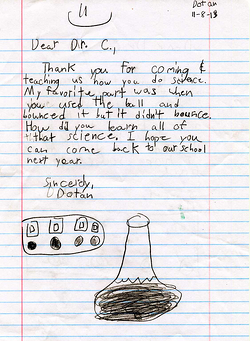 Dotan
11-8-13
Dear Dr. C.,
Thank you for coming &
teaching us how you do science.
My favorite part was when
you used the ball and
bounced it but it didn't bounce.
How did you learn all of
that science. I hope you
can come back to our school
next year.
Sincerly,
Dotan